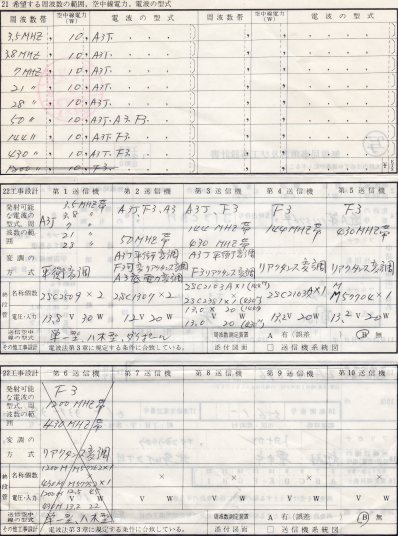 21 希望する周波数の範囲，空中線電力，電波の型式
周波数帯 空中線電力(W) 電波の型式 周波数帯 空中線電力(W) 電波の型式
3.5MHz, 10, A3J.
3.8MHz, 10, A3J.
7MHz, 10, A3J.
21 〃, 10, A3J.
28 〃, 10, A3J.
50 〃, 10, A3J. A3. F3.
144 〃, 10, A3J. F3.
430 〃, 10, A3J. F3.
1200 〃, 10, F3.
22工事設計 第1送信機 第2送信機 第3送信機 第4送信機 第5送信機
発射可能な電波の型式，周波数の範囲
A3J 3.5MHz帯 3.8 〃 7 〃 21 〃 28 〃
A3J, F3, A3 50MHz帯
A3J, F3 144MHz帯 430MHz帯
F3 144MHz帯
F3 430MHz帯
変調の方式
平衡変調
A3J平衡変調
F3可変リアクタンス変調
A3J平衡変調
F3リアクタンス変調
リアクタンス変調
リアクタンス変調
終段管 名称個数
2SC2509×2
2SC1307×2
2SC2103A×1
2SC2103A×1
M57704×1
電圧・入力
13.8V 30W
12V 20W
13.0 × 20
13.0 20
13.2V 20W
13.2V 20W
送信空中線の型式 単一型，八木型，ダイポール 周波数測定装置 A 有(誤差 B 無
その他工事設計 電波法第3章に規定する条件に合致している。 添付図面 □送信機系統図
22工事設計 第6送信機 第7送信機 第8送信機 第9送信機 第10送信機
発射可能な電波の型式，周波数の範囲
F3
1200MHz帯
430MHz帯
変調の方式
リアクタンス変調
終段管 名称個数
1200M M57762×1
× × × ×
電圧・入力
V W V W V W V W
送信空中線の型式 単一型，八木型 周波数測定装置 A 有(誤差 B 無
その他工事設計 電波法第3章に規定する条件に合致している。 添付図面 □送信機系統図